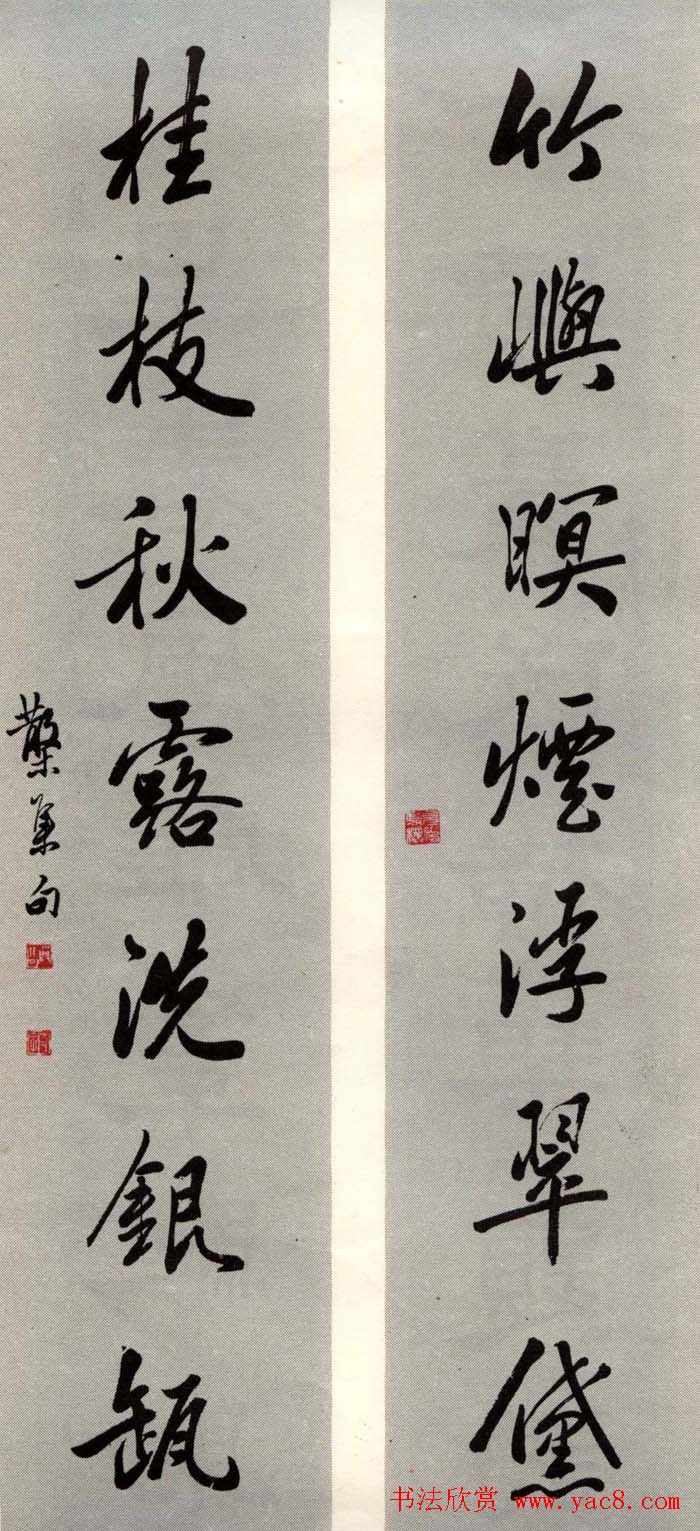 竹嶼瞑煙浮翠黛
桂枝秋露洗銀瓶
集句
书法欣赏 www.yac8.com